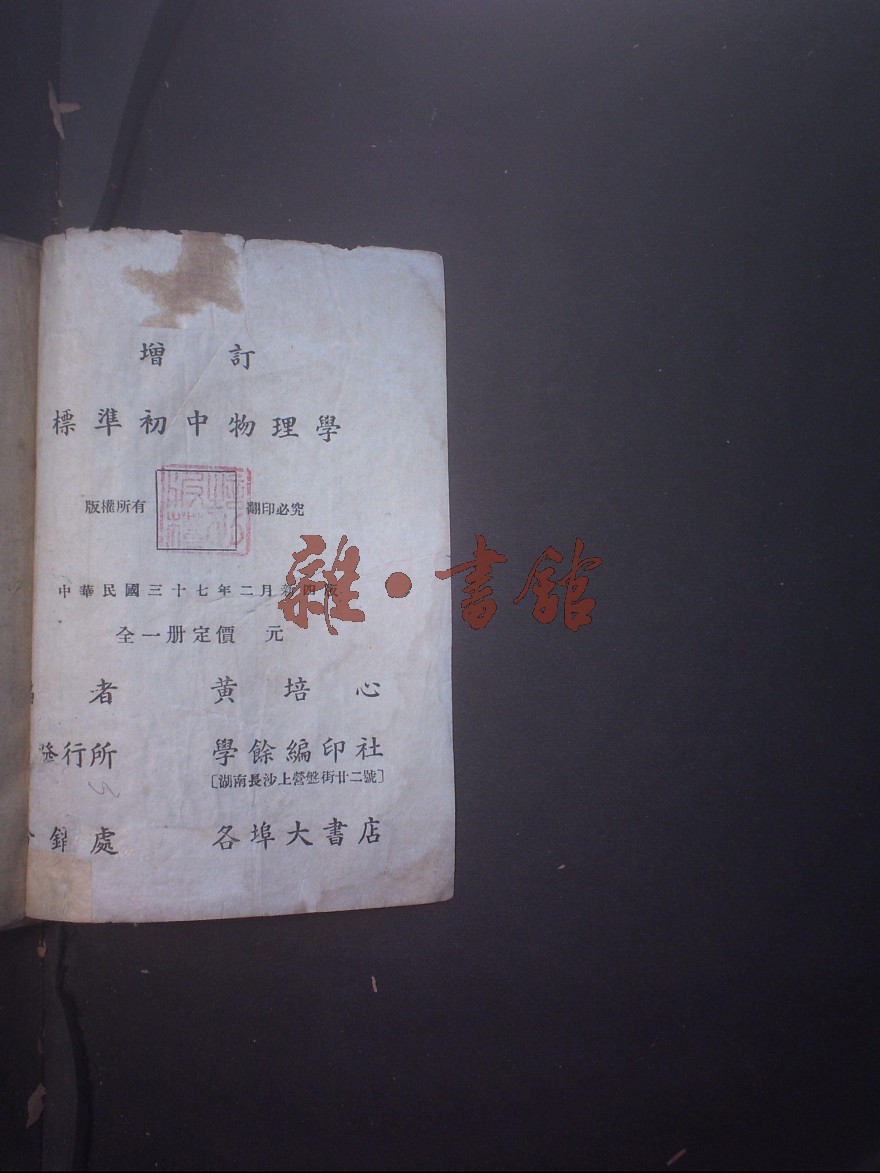 增訂
標準初中物理學
版權所有 翻印必究
中華民國三十七年二月新四版
全一册定價 元
編者 黃培心
發行所 學餘編印社
〔湖南長沙上營盤街廿二號〕
分銷處 各埠大書店
雜·書館